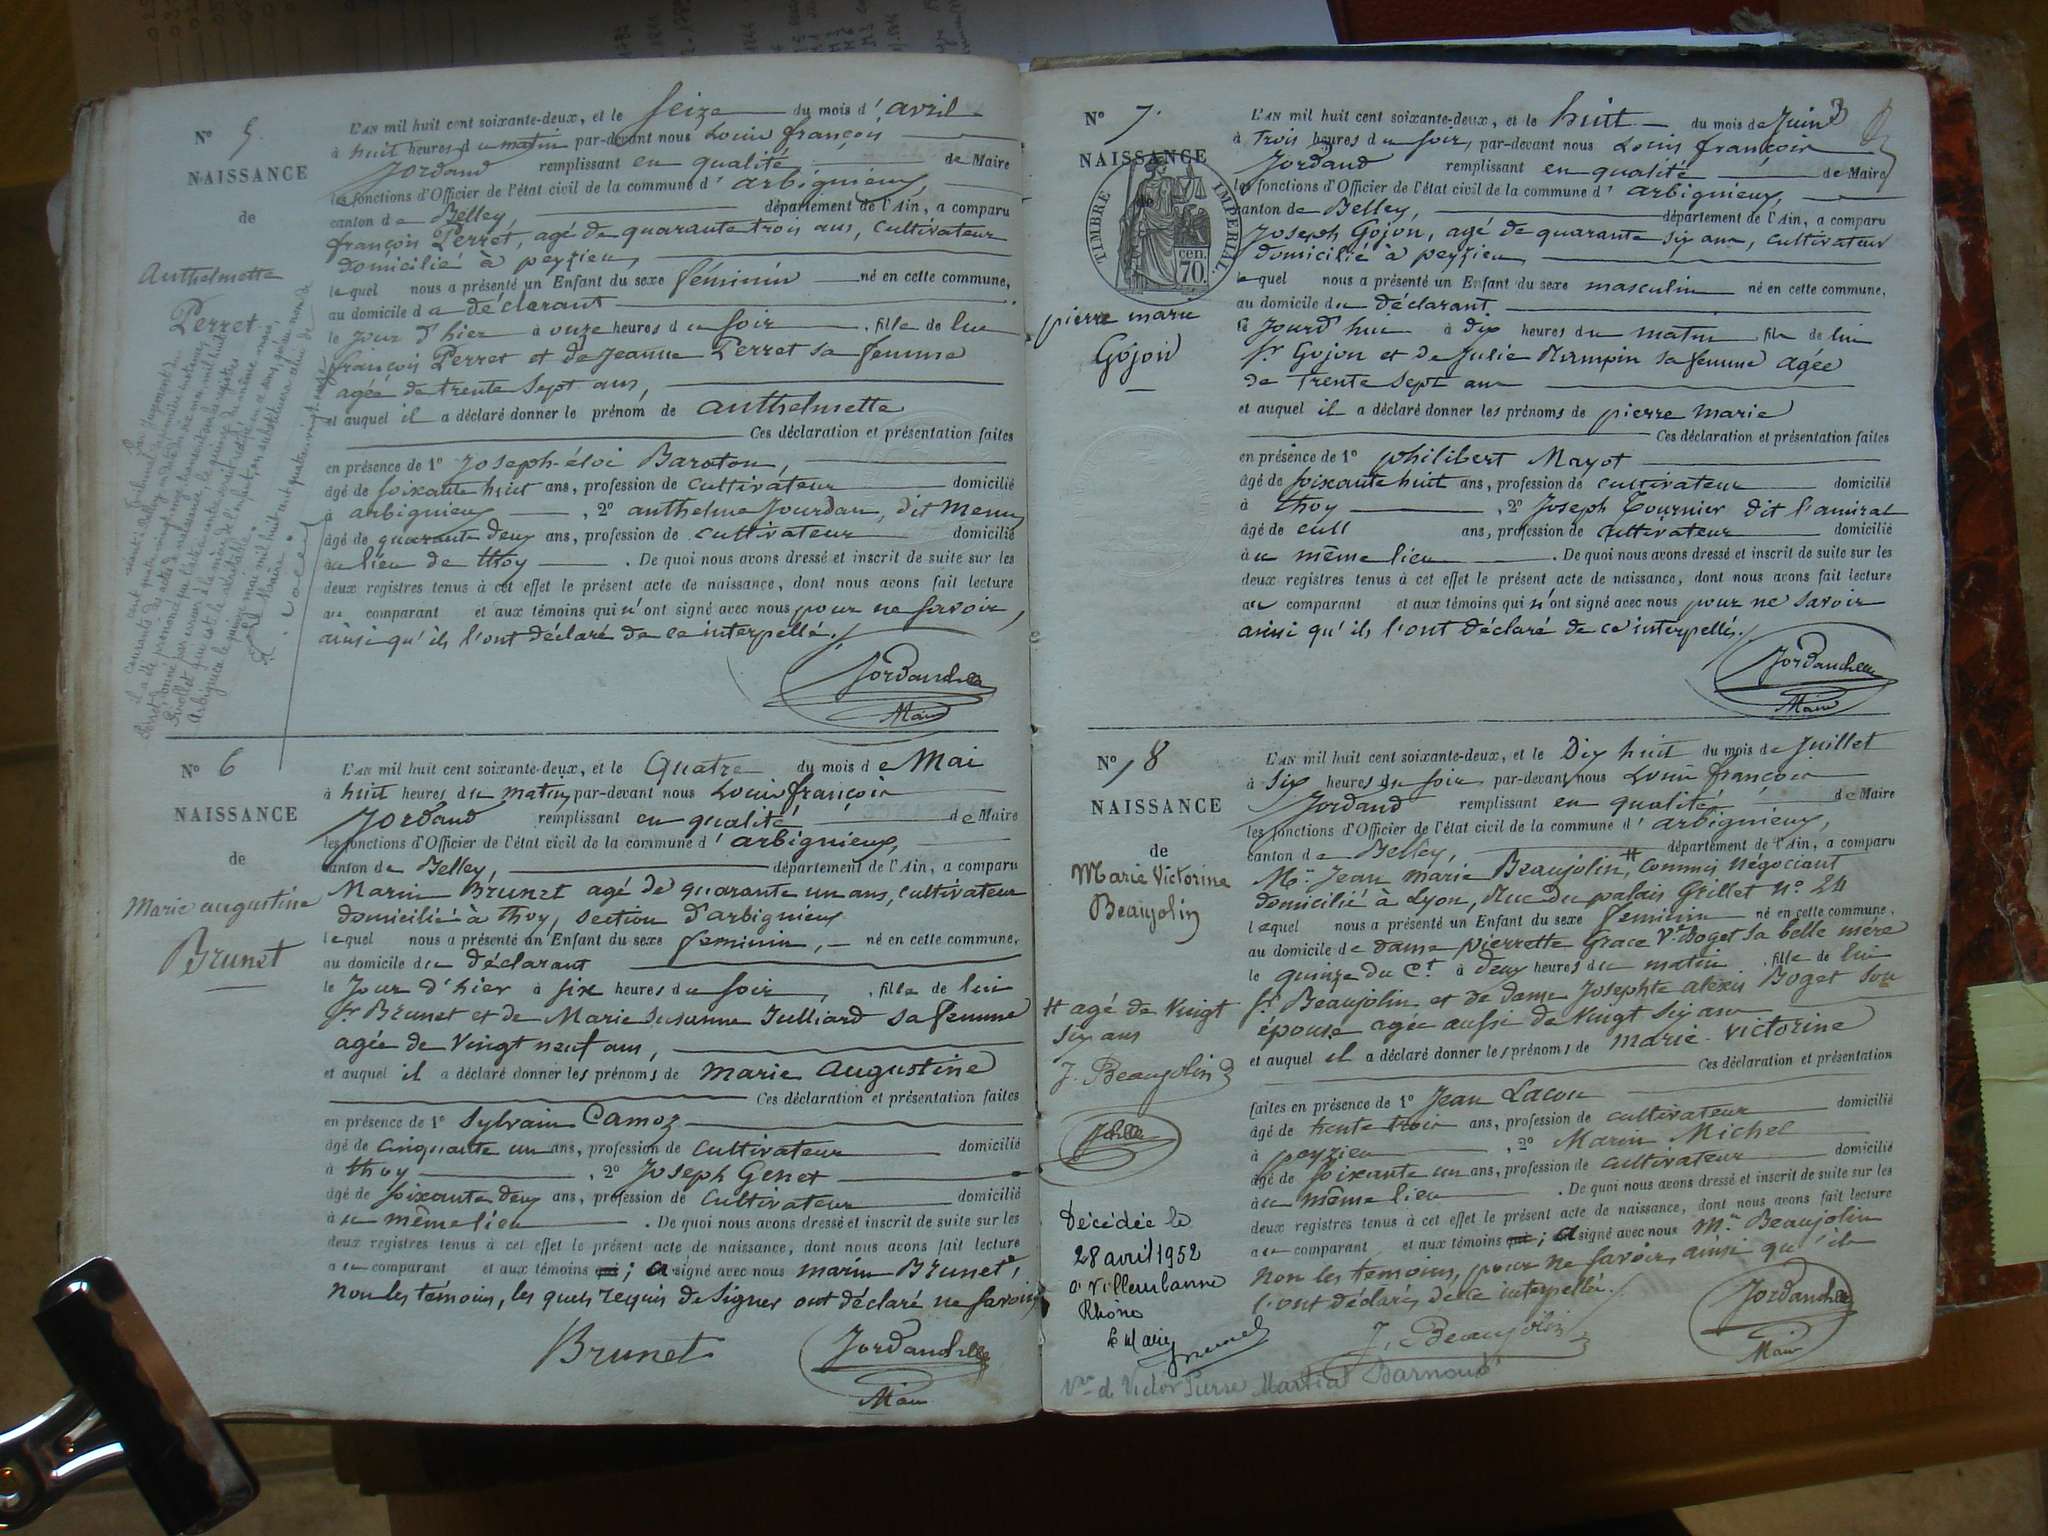 N° 5.
NAISSANCE
de
Anthelmette
Perret
L'AN mil huit cent soixante-deux, et le seize du mois d'avril
à huit heures du matin par-devant nous Louis françois
Jordand remplissant en qualité de Maire
les fonctions d'Officier de l'état civil de la commune d'arbignieux,
canton de Belley, département de l'Ain, a comparu
françois Perret, agé de quarante trois ans, cultivateur
domicilié à peyzieu,
lequel nous a présenté un Enfant du sexe féminin né en cette commune,
au domicile du déclarant
le jour d'hier à onze heures du soir, fille de lui
françois Perret et de Jeanne Perret sa femme
agée de trente sept ans,
et auquel il a déclaré donner le prénom de anthelmette
Ces déclaration et présentation faites
en présence de 1° Joseph-éloi Baroton,
âgé de soixante huit ans, profession de cultivateur domicilié
à arbignieux, 2° anthelme Jourdan, dit menu
âgé de quarante deux ans, profession de cultivateur domicilié
au lieu de thoy. De quoi nous avons dressé et inscrit de suite sur les
deux registres tenus à cet effet le présent acte de naissance, dont nous avons fait lecture
au comparant et aux témoins qui n'ont signé avec nous pour ne savoir,
ainsi qu'ils l'ont déclaré de ce interpellé.
Maire
N° 6
NAISSANCE
de
Marie augustine
Brunet
L'AN mil huit cent soixante-deux, et le Quatre du mois de Mai
à huit heures du matin, par-devant nous Louis françois
Jordand remplissant en qualité de Maire
les fonctions d'Officier de l'état civil de la commune d'arbignieux,
canton de Belley, département de l'Ain, a comparu
Marin Brunet agé de quarante un ans, cultivateur
domicilié à thoy, section d'arbignieux
lequel nous a présenté un Enfant du sexe feminin, né en cette commune,
au domicile du déclarant
le jour d'hier à six heures du soir, fille de lui
sr Brunet et de Marie Susanne Julliard sa femme
agée de vingt neuf ans,
et auquel il a déclaré donner les prénoms de marie augustine
Ces déclaration et présentation faites
en présence de 1° Sylvain Camoz
âgé de cinquante un ans, profession de cultivateur domicilié
à thoy, 2° Joseph Genet
âgé de soixante deux ans, profession de cultivateur domicilié
au même lieu. De quoi nous avons dressé et inscrit de suite sur les
deux registres tenus à cet effet le présent acte de naissance, dont nous avons fait lecture
au comparant et aux témoins qui; a signé avec nous marin Brunet,
non les témoins, les quels requis de signer ont déclaré ne savoir
Brunet
Maire
N° 7.
NAISSANCE
de
TIMBRE IMPERIAL.
70 cen.
pierre marie
Gojon
L'AN mil huit cent soixante-deux, et le huit du mois de Juin
à trois heures du soir, par-devant nous Louis françois
Jordand remplissant en qualité de Maire
les fonctions d'Officier de l'état civil de la commune d'arbignieux,
canton de Belley, département de l'Ain, a comparu
Joseph Gojon, agé de quarante six ans, cultivateur
domicilié à peyzieu,
lequel nous a présenté un Enfant du sexe masculin né en cette commune,
au domicile du déclarant
le jourd'hui à dix heures du matin fils de lui
sr Gojon et de Julie sa femme agée
de trente sept ans
et auquel il a déclaré donner les prénoms de pierre marie
Ces déclaration et présentation faites
en présence de 1° philibert Mayot
âgé de soixante huit ans, profession de cultivateur domicilié
à thoy, 2° Joseph Tournier dit l'amiral
âgé de ans, profession de cultivateur domicilié
au même lieu. De quoi nous avons dressé et inscrit de suite sur les
deux registres tenus à cet effet le présent acte de naissance, dont nous avons fait lecture
au comparant et aux témoins qui n'ont signé avec nous pour ne savoir
ainsi qu'ils l'ont déclaré de ce interpellés.
Maire
N° 8
NAISSANCE
de
Marie Victorine
Beaujolin
# agé de vingt
six ans
J. Beaujolin
Décédée le
28 avril 1952
à Villeurbanne
Rhône
le Maire
Vve de Victor Pierre Martial Barnoud
L'AN mil huit cent soixante-deux, et le Dix huit du mois de Juillet
à six heures du soir par-devant nous Louis françois
Jordand remplissant en qualité de Maire
les fonctions d'Officier de l'état civil de la commune d'arbignieux,
canton de Belley, département de l'Ain, a comparu
Mr Jean marie Beaujolin, # commis négociant
domicilié à Lyon, Rue du palais Grillet N° 24
lequel nous a présenté un Enfant du sexe feminin né en cette commune,
au domicile de dame pierrette Grace Ve Boget sa belle mère
le quinze du Ct à deux heures du matin, fille de lui
sr Beaujolin et de dame Josephte alexis Boget son
épouse agée aussi de vingt six ans
et auquel il a déclaré donner les prénoms de marie-victorine
Ces déclaration et présentation
faites en présence de 1° Jean Lacou
âgé de trente trois ans, profession de cultivateur domicilié
à peyzieu, 2° Marin Michel
âgé de soixante un ans, profession de cultivateur domicilié
au même lieu. De quoi nous avons dressé et inscrit de suite sur les
deux registres tenus à cet effet le présent acte de naissance, dont nous avons fait lecture
au comparant et aux témoins qui; a signé avec nous Mr Beaujolin
non les témoins, pour ne savoir, ainsi qu'ils
l'ont déclaré, de ce interpellé.
J. Beaujolin
Maire